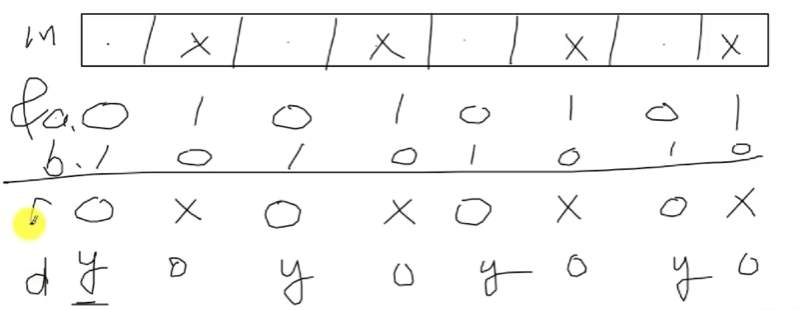 in . X . X . X . X
& a. 0 1 0 1 0 1 0 1
b. 1 0 1 0 1 0 1 0
r 0 X 0 X 0 X 0 X
d y 0 y 0 y 0 y 0